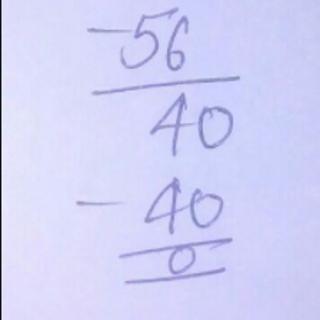 -56
40
- 40
0